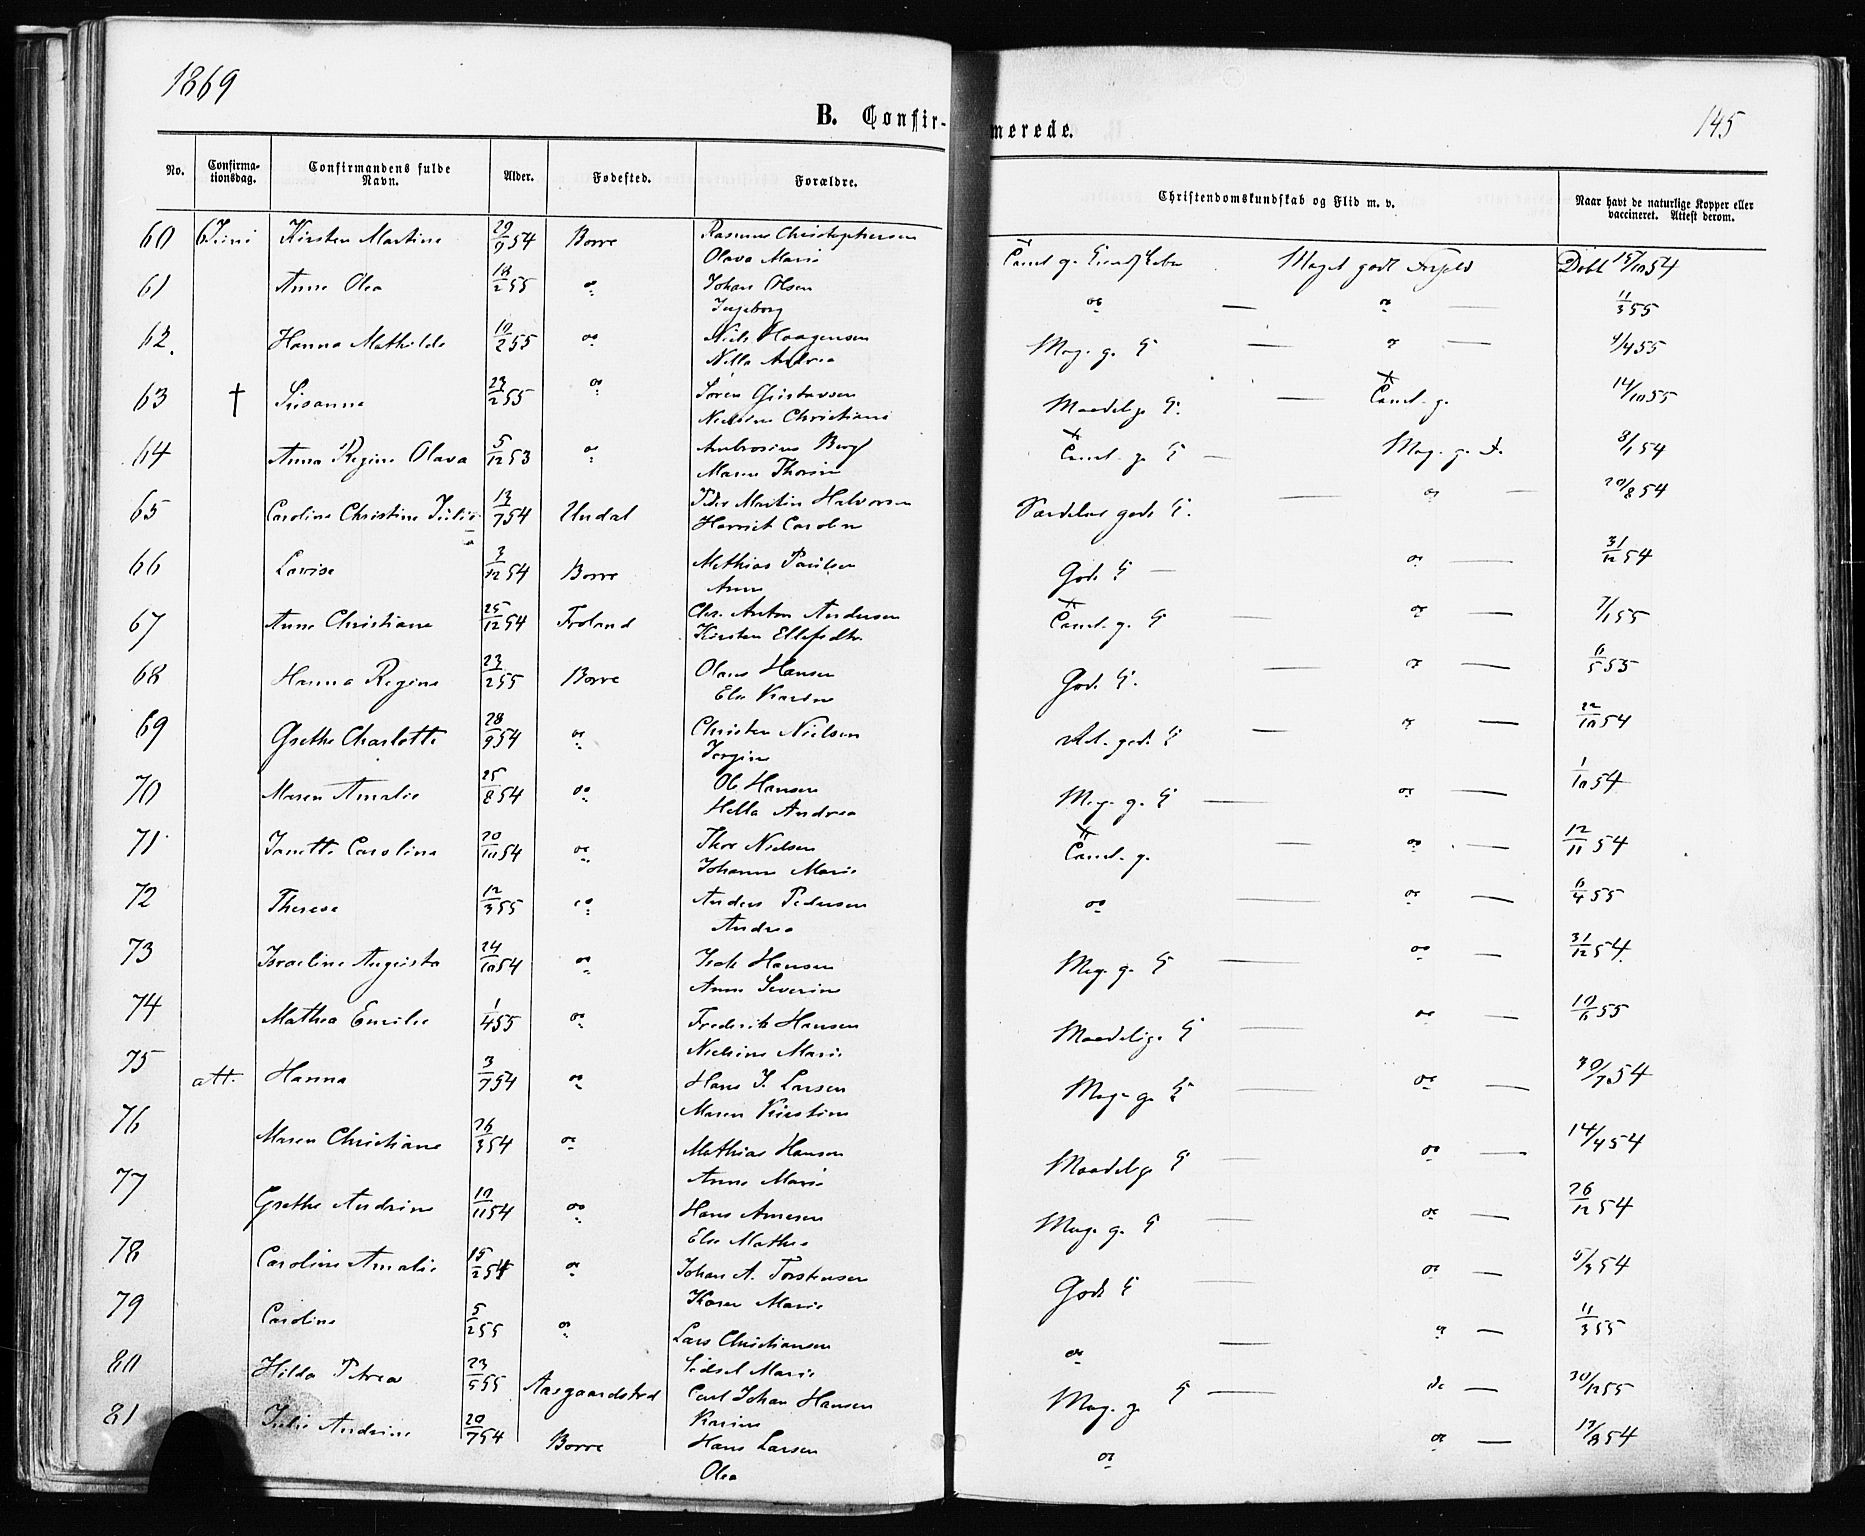 1869
B. Confir-
merede.
145
No.
Confirma-
tionsdag.
Confirmandens fulde
Navn.
Alder.
Fødested.
Forældre.
Christendomskundskab og Flid m. v.
Naar havt de naturlige Kopper eller
vaccineret. Attest derom.
60 6 Juni Kirsten Martine 29/9 54 Borre Rasmus Christophersen
Olava Marie
Meget godt Forhold 15/10 54
61 Anne Olea 18/2 55 do Johan Olsen
Ingeborg
do — do — 11/3 55
62. Hanna Mathilde 10/2 55 do Niels Haagensen
Nilla Andrea
Meg. g. — do — 4/4 55
63 † Susanne 23/2 55 do Søren Gustavsen
Nielsine Christiane
Maadelige — 14/10 55
64 Anna Regine Olava 5/12 53 do Ambrosius Berg
Maren Thorine
Meg. g. 8/1 54
65 Caroline Christine Julie 13/7 54 Undal Peder Martin Halvorsen
Harriet Caroline
Særdeles gode — do — 20/8 54
66 Lovise 3/12 54 Borre Mathias Paulsen
Anne
Gode — do — 31/12 54
67 Anne Christiane 25/12 54 Froland Chr. Anton Andersen
Kirsten Ellefsdtr
— do — 7/1 55
68 Hanna Regine 23/2 55 Borre Olaus Hansen
Else Karine
Gode — do — 11/5 55
69 Grethe Charlotte 28/9 54 do Christen Nielsen
Jørgine
gode — do — 22/10 54
70 Maren Amalie 25/8 54 do Ole Hansen
Hella Andrea
Meg. g. — do — 1/10 54
71 Janette Caroline 20/10 54 do Thor Nielsen
Johanne Marie
— do — 12/11 54
72 Therese 12/3 55 do Anders Pedersen
Andrea
do — do — 11/4 55
73 Israeline Augusta 24/10 54 do Isak Hansen
Anne Severine
Meg. g. — do — 31/12 54.
74 Mathea Emilie 1/4 55 do Frederik Hansen
Nielsine Marie
Maadelige — do — 55
75 att. Hanna 3/7 54 do Hans J. Larsen
Maren Kirstine
Meg. g. — do — 30/7 54
76 Maren Christiane 26/3 54 do Mathias Hansen
Anne Marie
Maadelige — do — 14/4 54
77 Grethe Andrine 10/11 54 do Hans Arnesen
Else Mathea
Meg. g. — do — 26/12 54
78 Caroline Amalie 15/2 54 do Johan A. Torstensen
Karen Marie
Gode — do — 5/3 54
79 Caroline 5/2 55 do Lars Christiansen
Sidsel Marie
do — do — 11/3 55
80 Hilda Petrea 23/5 55 Aasgaardstrand Carl Johan Hansen
Karine
Meg. g. — do — 30/12 55
81 Julie Andrine 20/7 54 Borre Hans Larsen
Olea
do do — 17/8 54